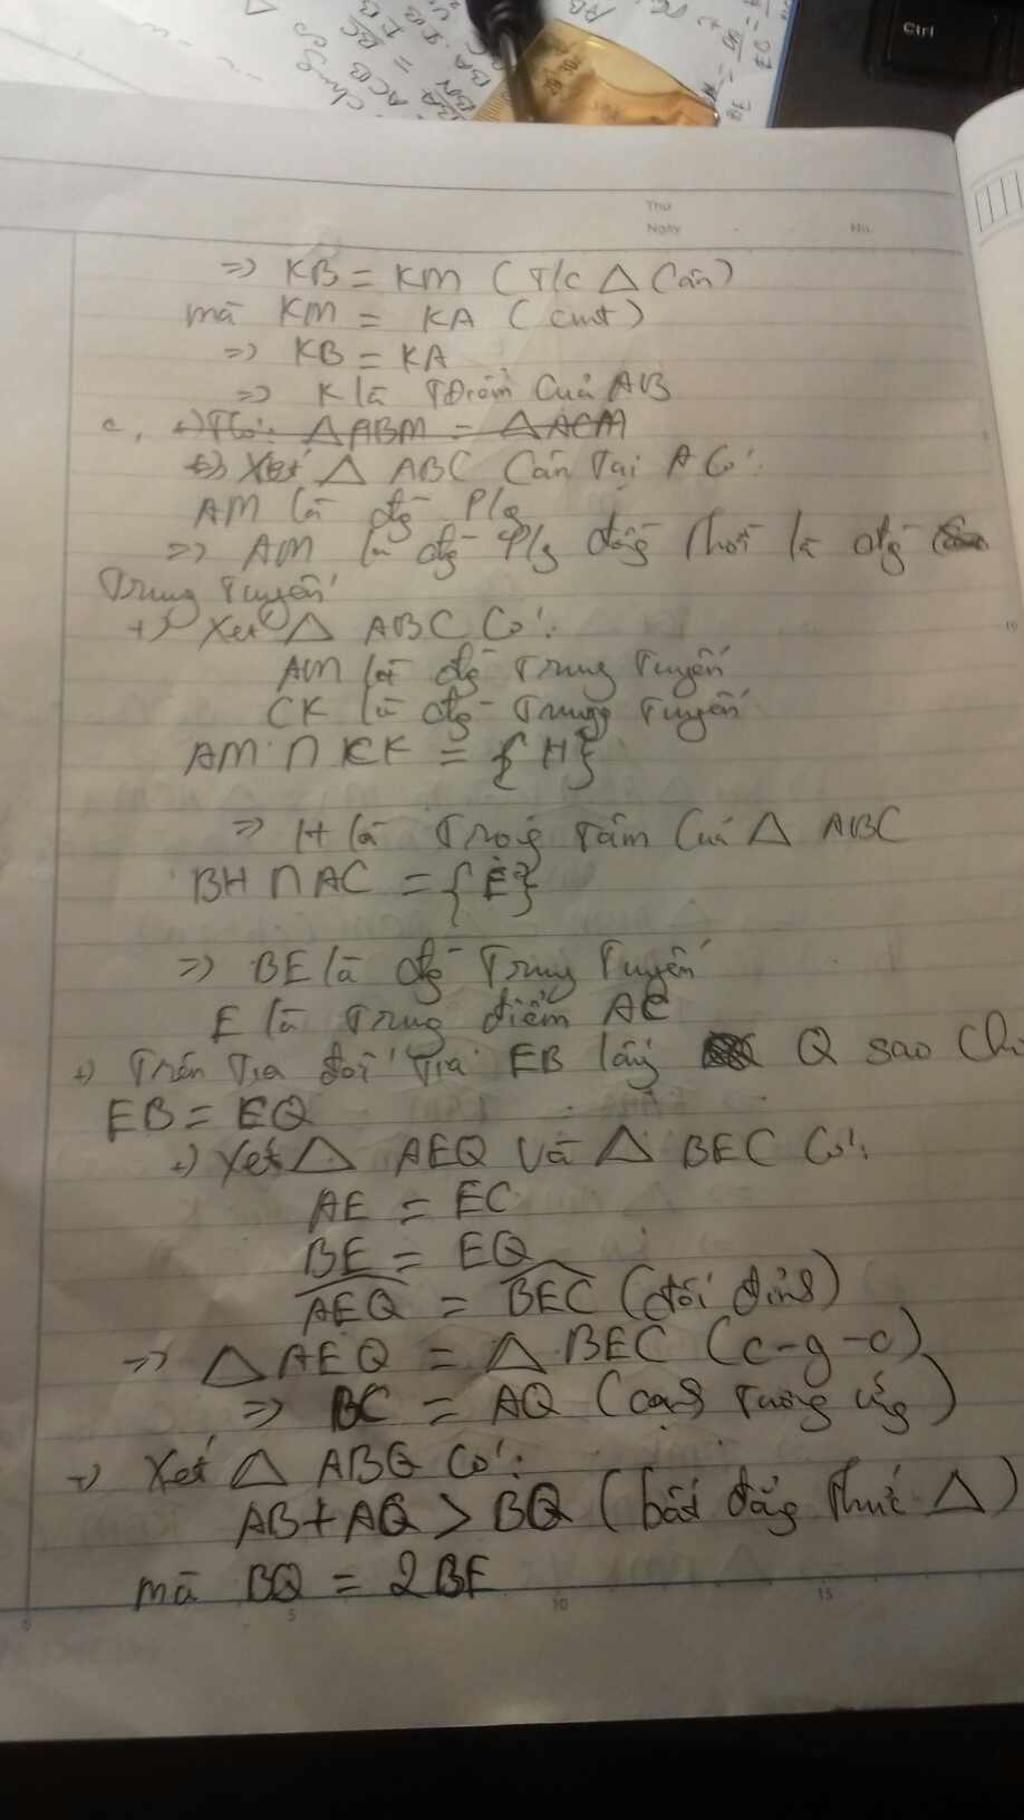 Ctrl
Thứ
Ngày
No.
=> KB = KM (T/c △ Cân)
mà KM = KA (cmt)
=> KB = KA
=> K là Tđiểm Của AB
c, +) Xét △ ABC Cân Tại A Có:
AM là đg P/g
=> AM là đg P/g đồng Thời là đg
Trung Tuyến
+) Xét △ ABC Có:
AM là đg Trung Tuyến
CK là đg Trung Tuyến
AM ∩ CK = {H}
=> H là Trọng Tâm Của △ ABC
BH ∩ AC = {E}
=> BE là đg Trung Tuyến
E là Trung điểm AC
+) Trên Tia đối Tia EB lấy Q sao Cho
EB = EQ
+) Xét △ AEQ Và △ BEC Có:
AE = EC
BE = EQ
AEQ = BEC (đối đỉnh)
=> △ AEQ = △ BEC (c-g-c)
=> BC = AQ (cạnh Tương ứng)
+) Xét △ ABQ Có:
AB + AQ > BQ (bất đẳng Thức △)
mà BQ = 2BE
5 10 15